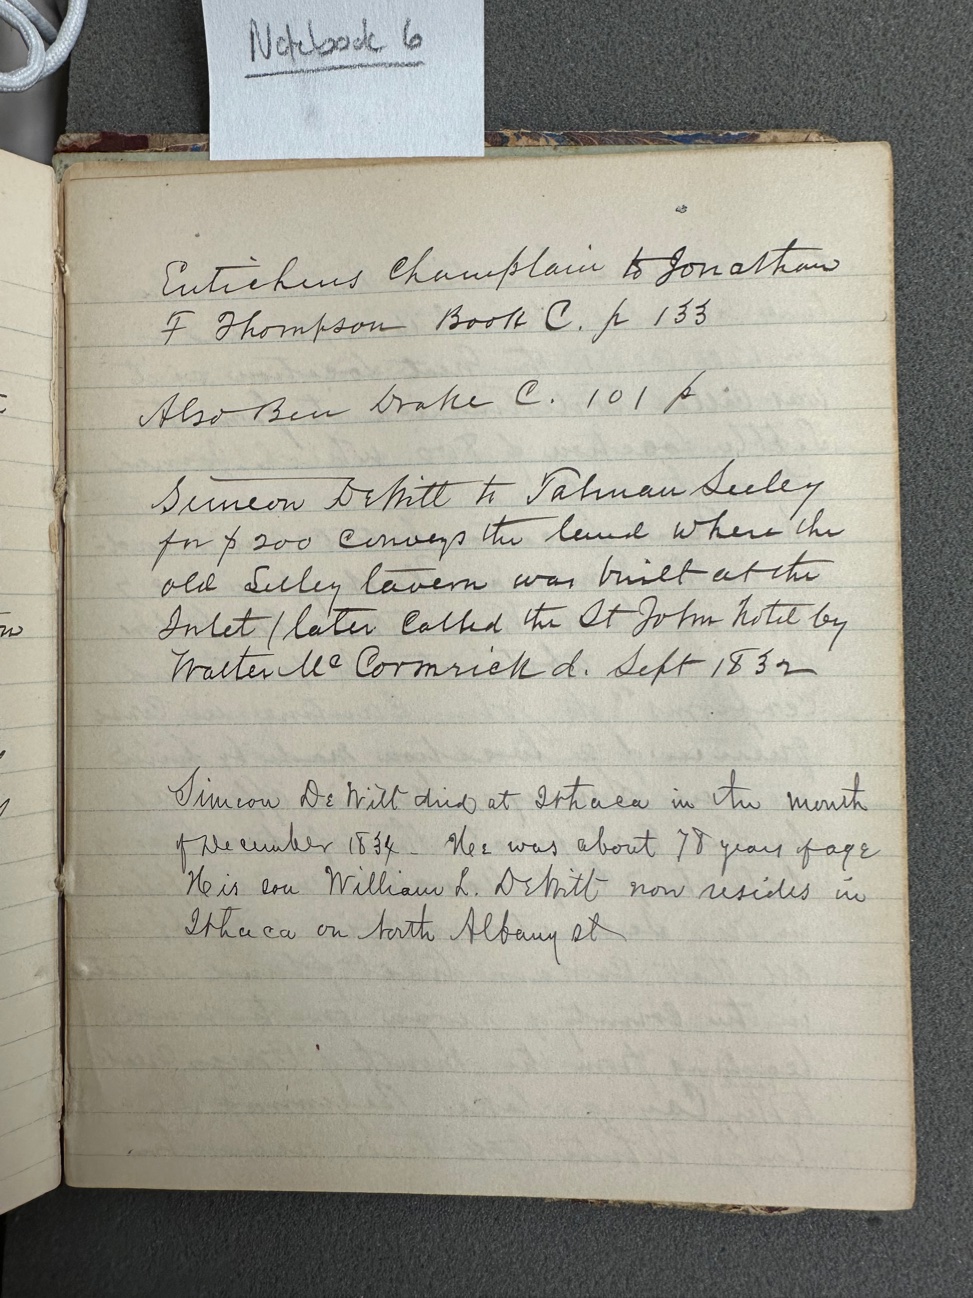 Notebook 6
Euticheus Champlain to Jonathan
F Thompson Book C. p 133
Also Ben Drake C. 101 p
Simeon DeWitt to Talman Seeley
for $200 conveys the land where the
old Seeley tavern was built at the
Inlet / later called the St John Hotel by
Walter Mc Cormrick d. Sept 1832
Simeon DeWitt died at Ithaca in the month
of December 1834. He was about 78 years of age
His son William L. DeWitt now resides in
Ithaca on North Albany st